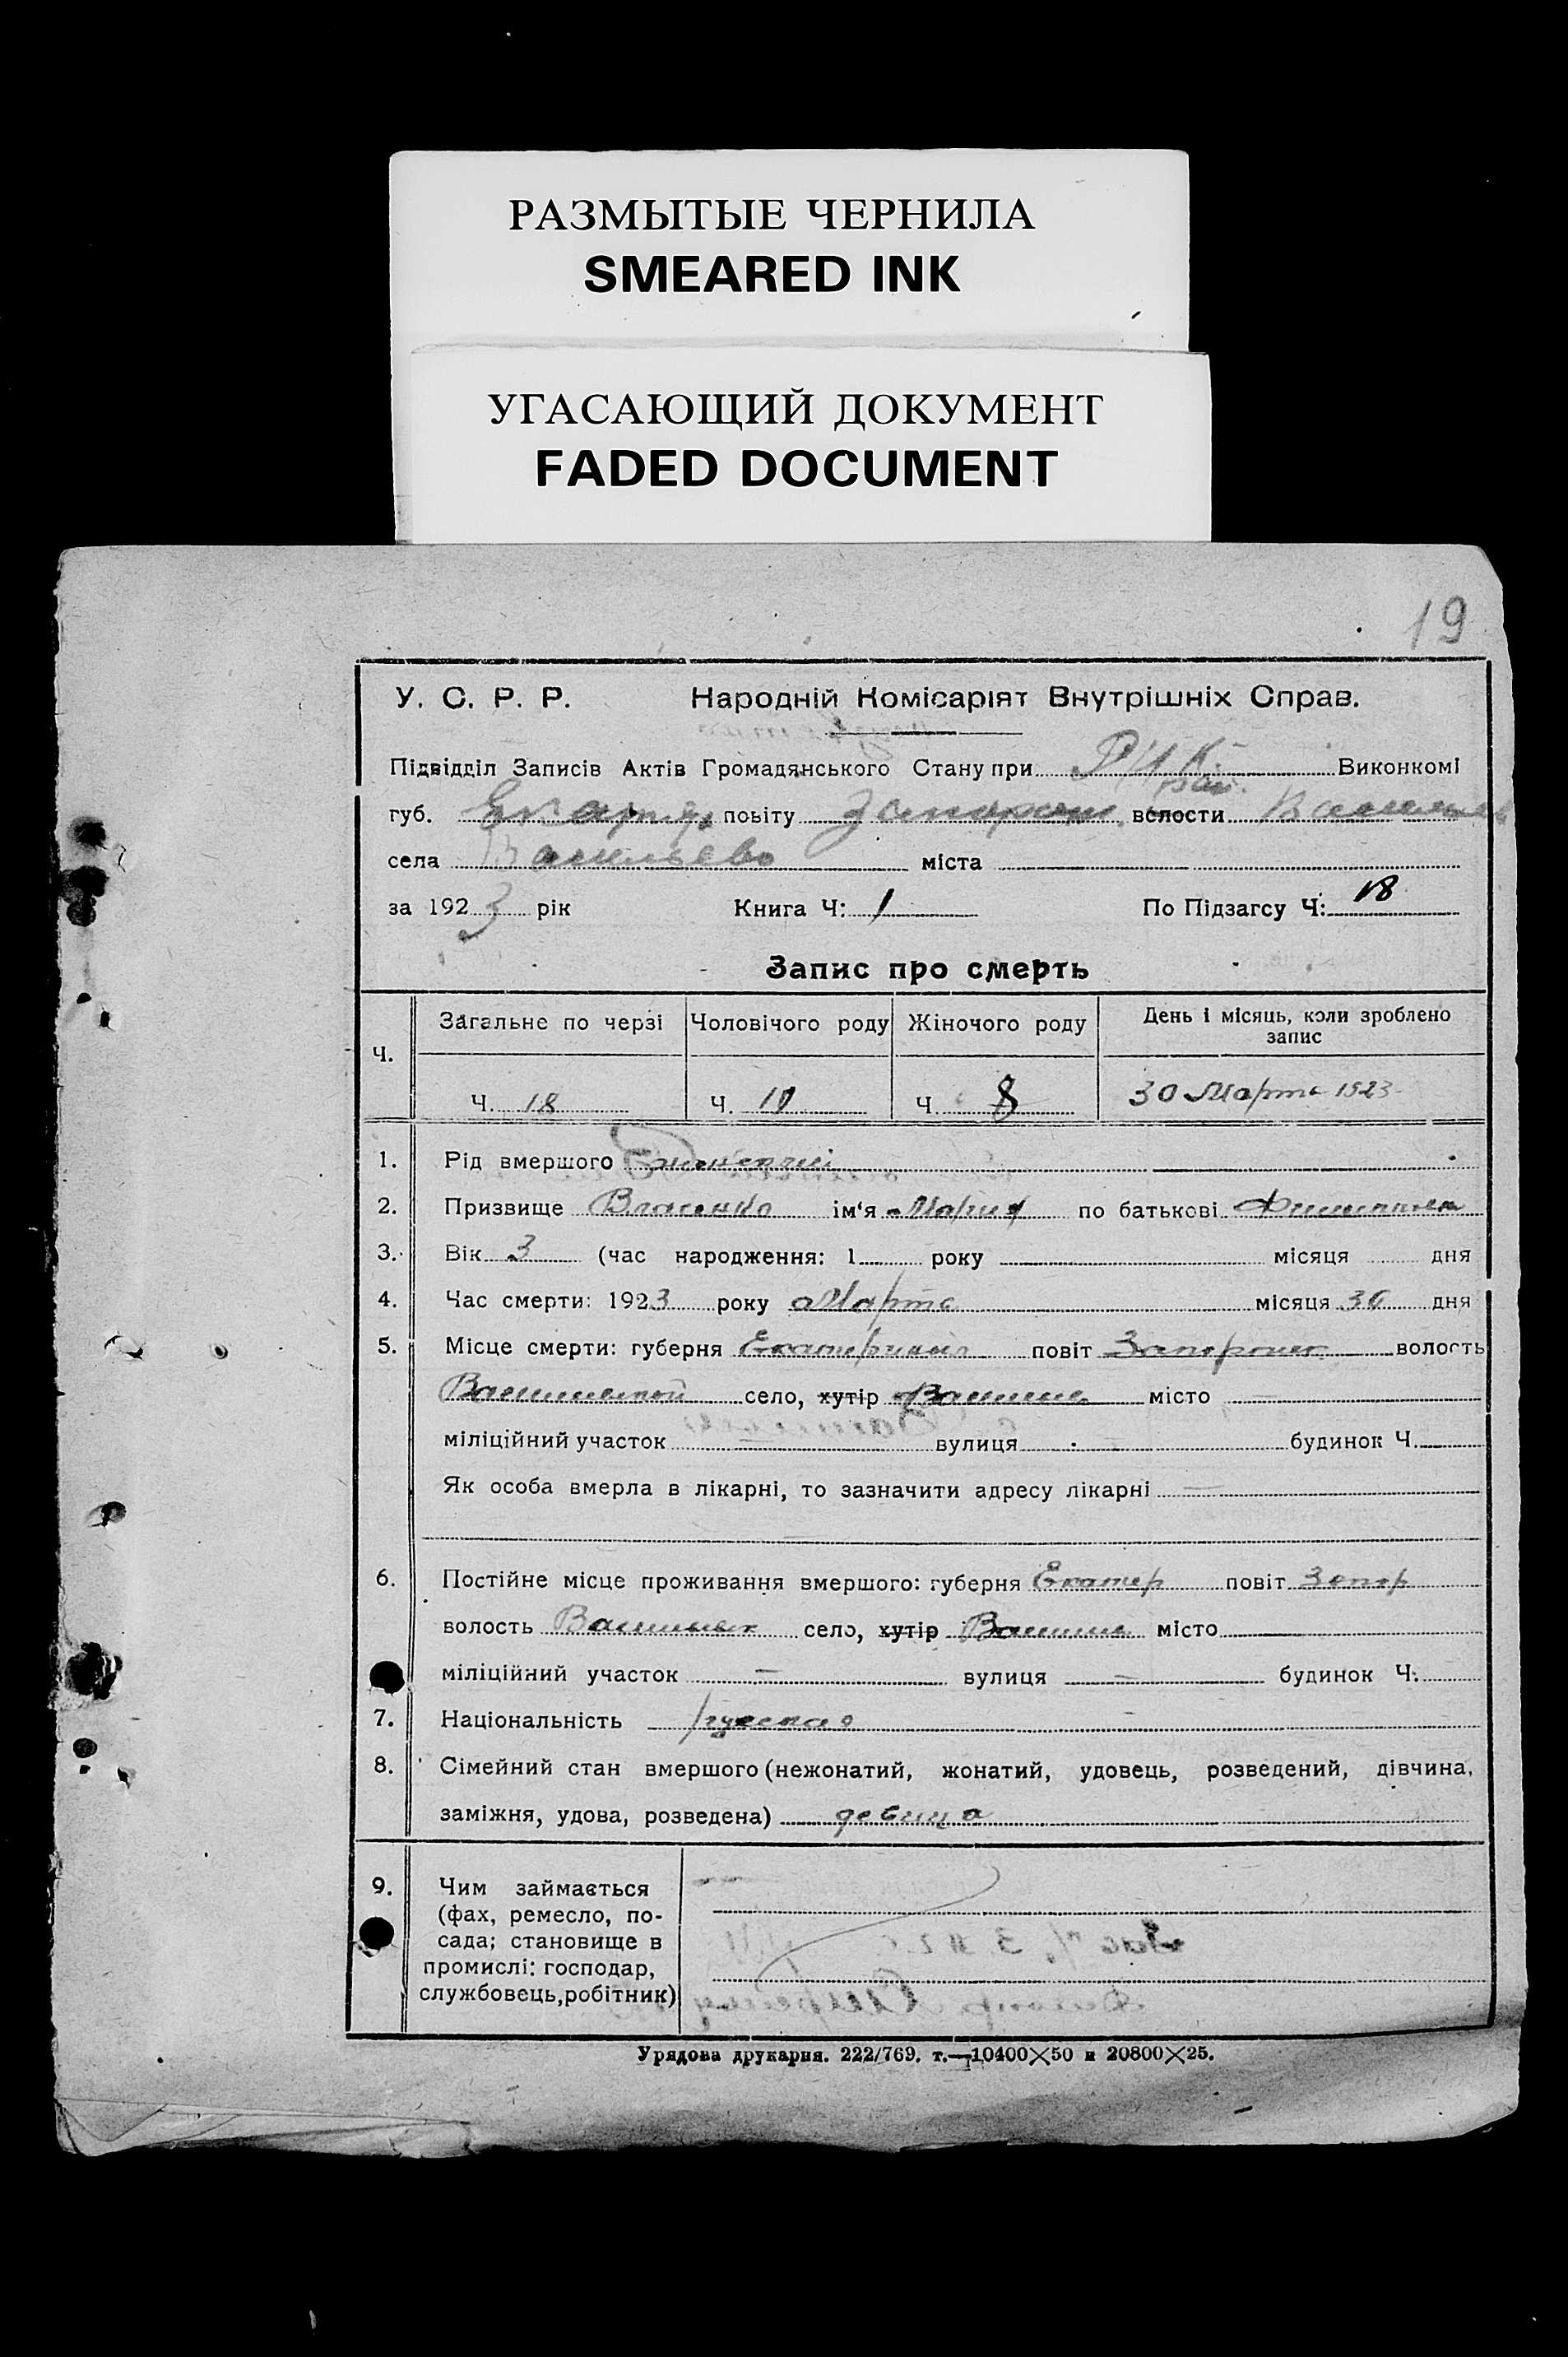 РАЗМЫТЫЕ ЧЕРНИЛА
SMEARED INK
УГАСАЮЩИЙ ДОКУМЕНТ
FADED DOCUMENT
19
У. С. Р. Р. Народній Комісаріят Внутрішніх Справ.
Підвідділ Записів Актів Громадянського Стану при РИК Виконкомі
рай.
губ. повіту Запорож. волости Васильев
села Васильево міста
за 1923 рік Книга Ч: 1 По Підзагсу Ч: 18
Запис про смерть
Ч. Загальне по черзі Чоловічого роду Жіночого роду День і місяць, коли зроблено запис
Ч. 18 Ч. 10 Ч 8 30 Марта 1923
1. Рід вмершого женский
2. Призвище Власенко ім'я Мария по батькові
3. Вік 3 (час народження: 1 року місяця дня
4. Час смерти: 1923 року Марта місяця 30 дня
5. Місце смерти: губерня повіт волость
село, хутір місто
міліційний участок вулиця будинок Ч.
Як особа вмерла в лікарні, то зазначити адресу лікарні
6. Постійне місце проживання вмершого: губерня Екатер повіт Запор
волость село, хутір місто
міліційний участок вулиця будинок Ч.
7. Національність руская
8. Сімейний стан вмершого (нежонатий, жонатий, удовець, розведений, дівчина,
заміжня, удова, розведена) девица
9. Чим займається
(фах, ремесло, по-
сада; становище в
промислі: господар,
службовець, робітник)
Урядова друкарня. 222/769. т.—10400×50 и 20800×25.